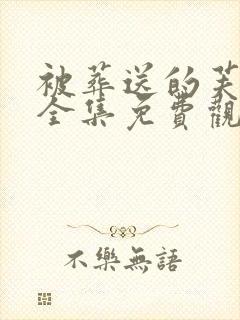 被葬送的芙
全集免費觀
不樂無語